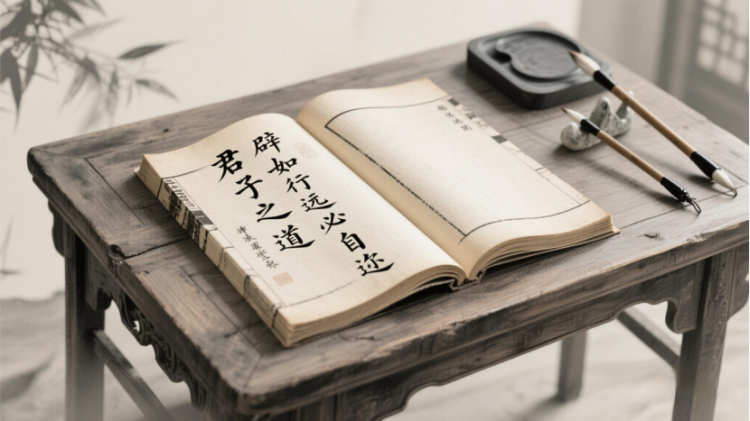 君子之道
辟如行远必自迩